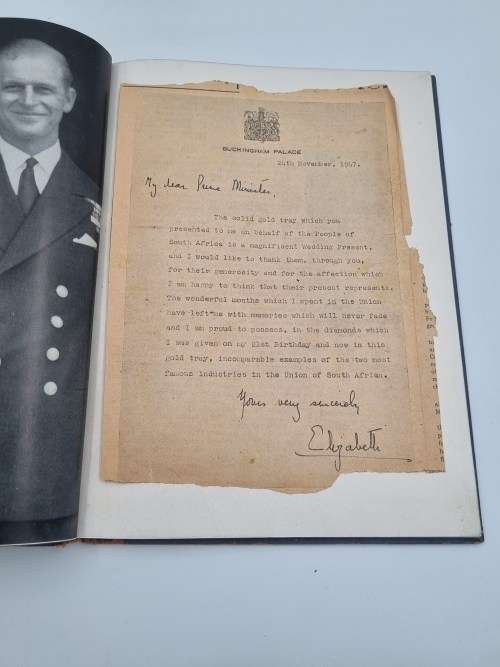 BUCKINGHAM PALACE
24th November, 1947.
My dear Prime Minister,
The solid gold tray which you
presented to me on behalf of the People of
South Africa is a magnificent Wedding Present,
and I would like to thank them, through you,
for their generosity and for the affection which
I am happy to think that their present represents.
The wonderful months which I spent in the Union
have left me with memories which will never fade
and I am proud to possess, in the diamonds which
I was given on my 21st Birthday and now in this
gold tray, incomparable examples of the two most
famous industries in the Union of South Africa.
Yours very sincerely
Elizabeth